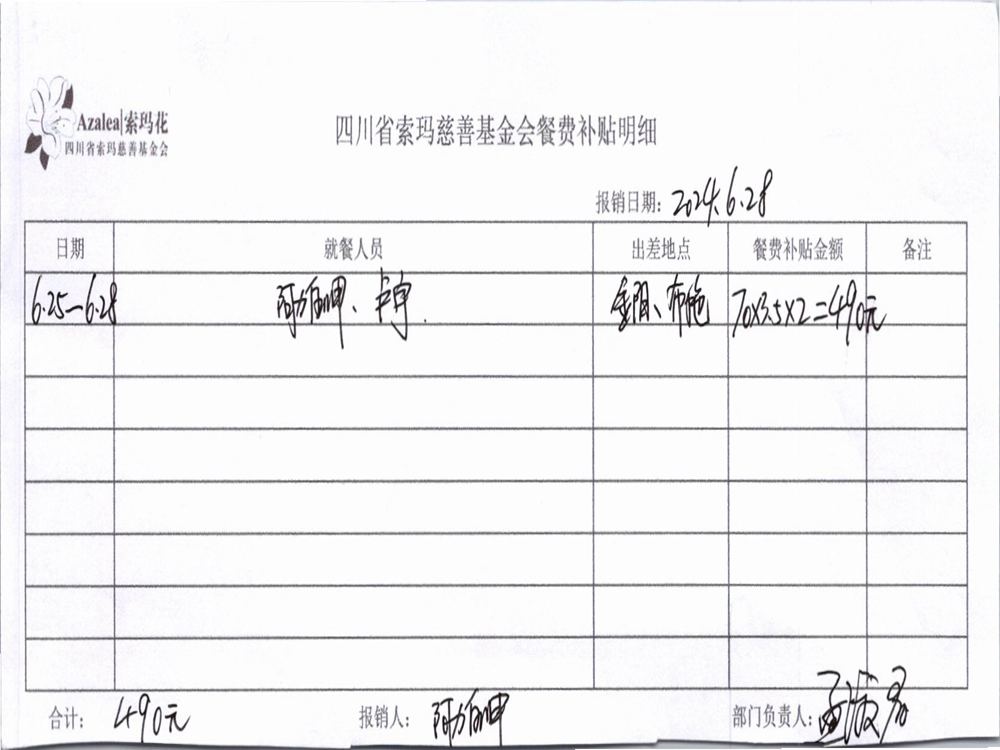 Azalea|索玛花
四川省索玛慈善基金会
四川省索玛慈善基金会餐费补贴明细
报销日期：2024.6.28
日期 就餐人员 出差地点 餐费补贴金额 备注
6.25—6.28 阿力伯呷、卢宇. 金阳、布拖 70×3.5×2=490元
合计：490元 报销人：阿力伯呷 部门负责人：